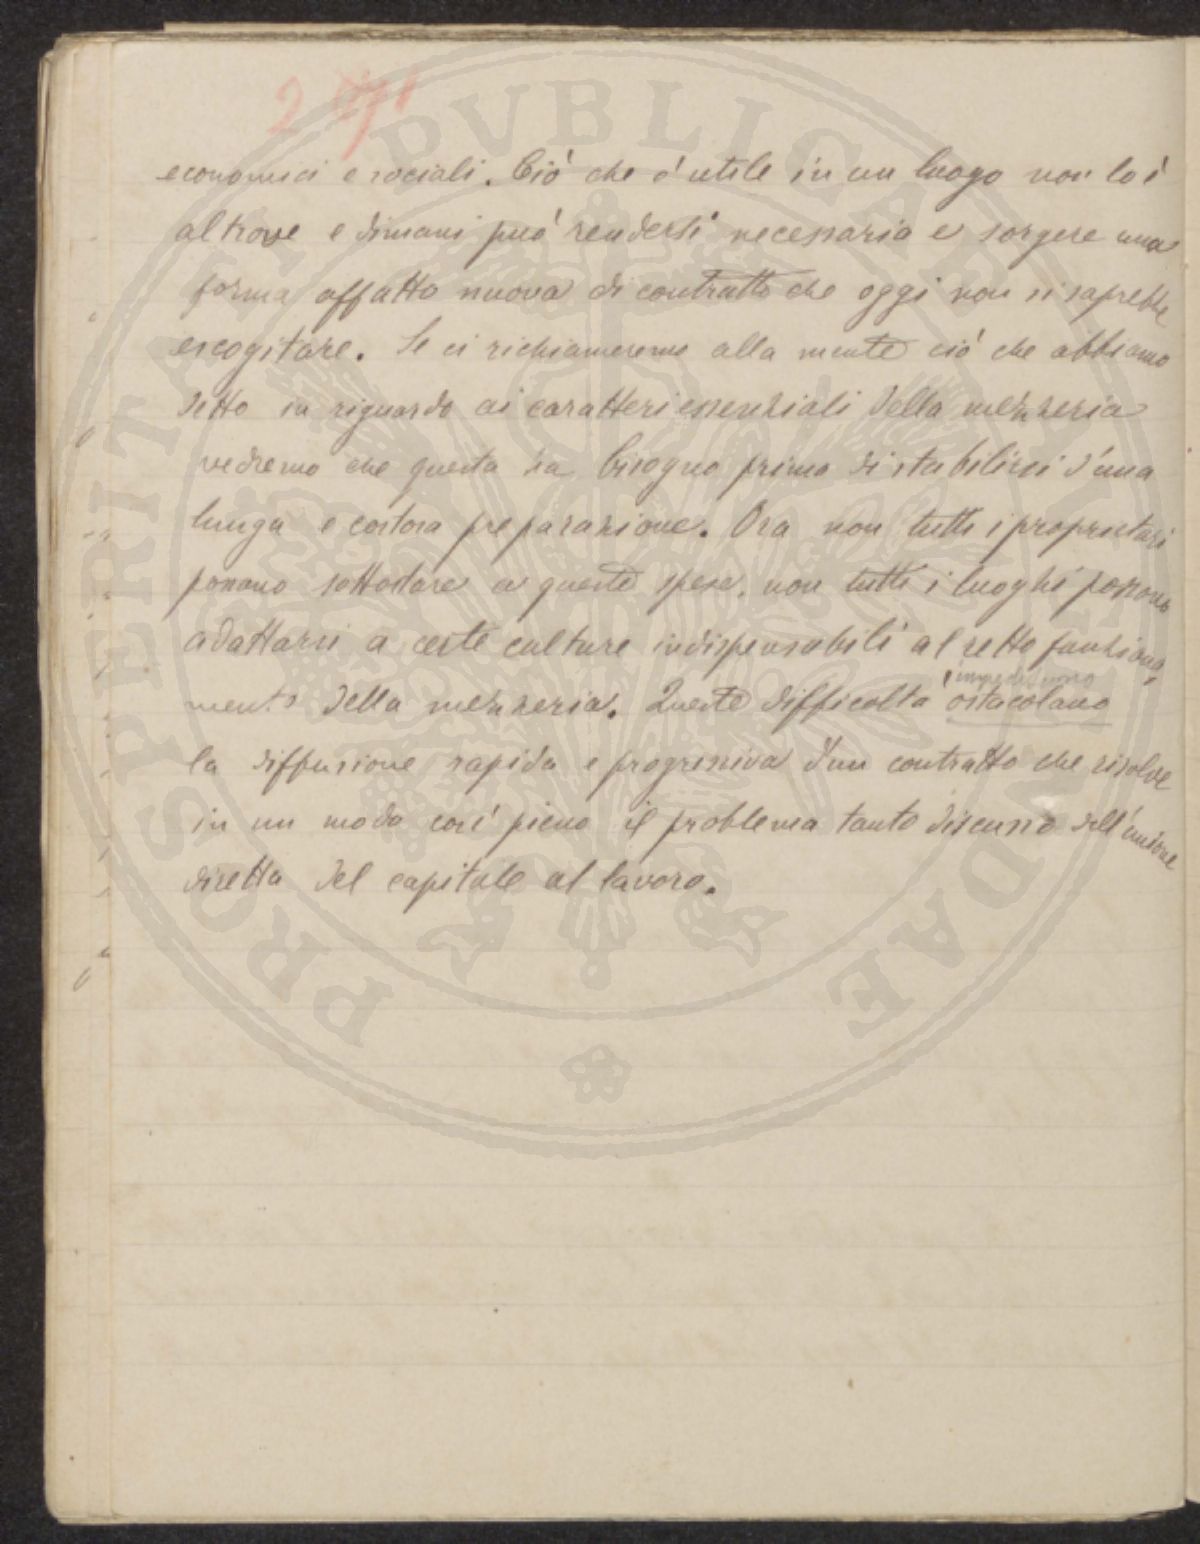 PROSPERITATI PVBLICAE AVGENDAE
2
economici e sociali. Ciò che é utile in un luogo non lo è
altrove e dimani puó rendersi necessaria e sorgere una
forma affatto nuova di contratto che oggi non si saprebbe
escogitare. Se ci richiameremo alla mente ció che abbiamo
detto in riguardo ai caratteri essenziali della mezzeria
vedremo che questa ha bisogno prima di stabilirsi d'una
lunga e costosa preparazione. Ora non tutti i proprietari
possono sottostare a queste spese, non tutti i luoghi possono
adattarsi a certe culture indispensabili al retto funziona-
impediscono
mento della mezzeria. Queste difficoltà ostacolano
la diffusione rapida e progressiva d'un contratto che risolve
in un modo cosí pieno il problema tanto discusso dell'unione
diretta del capitale al lavoro.